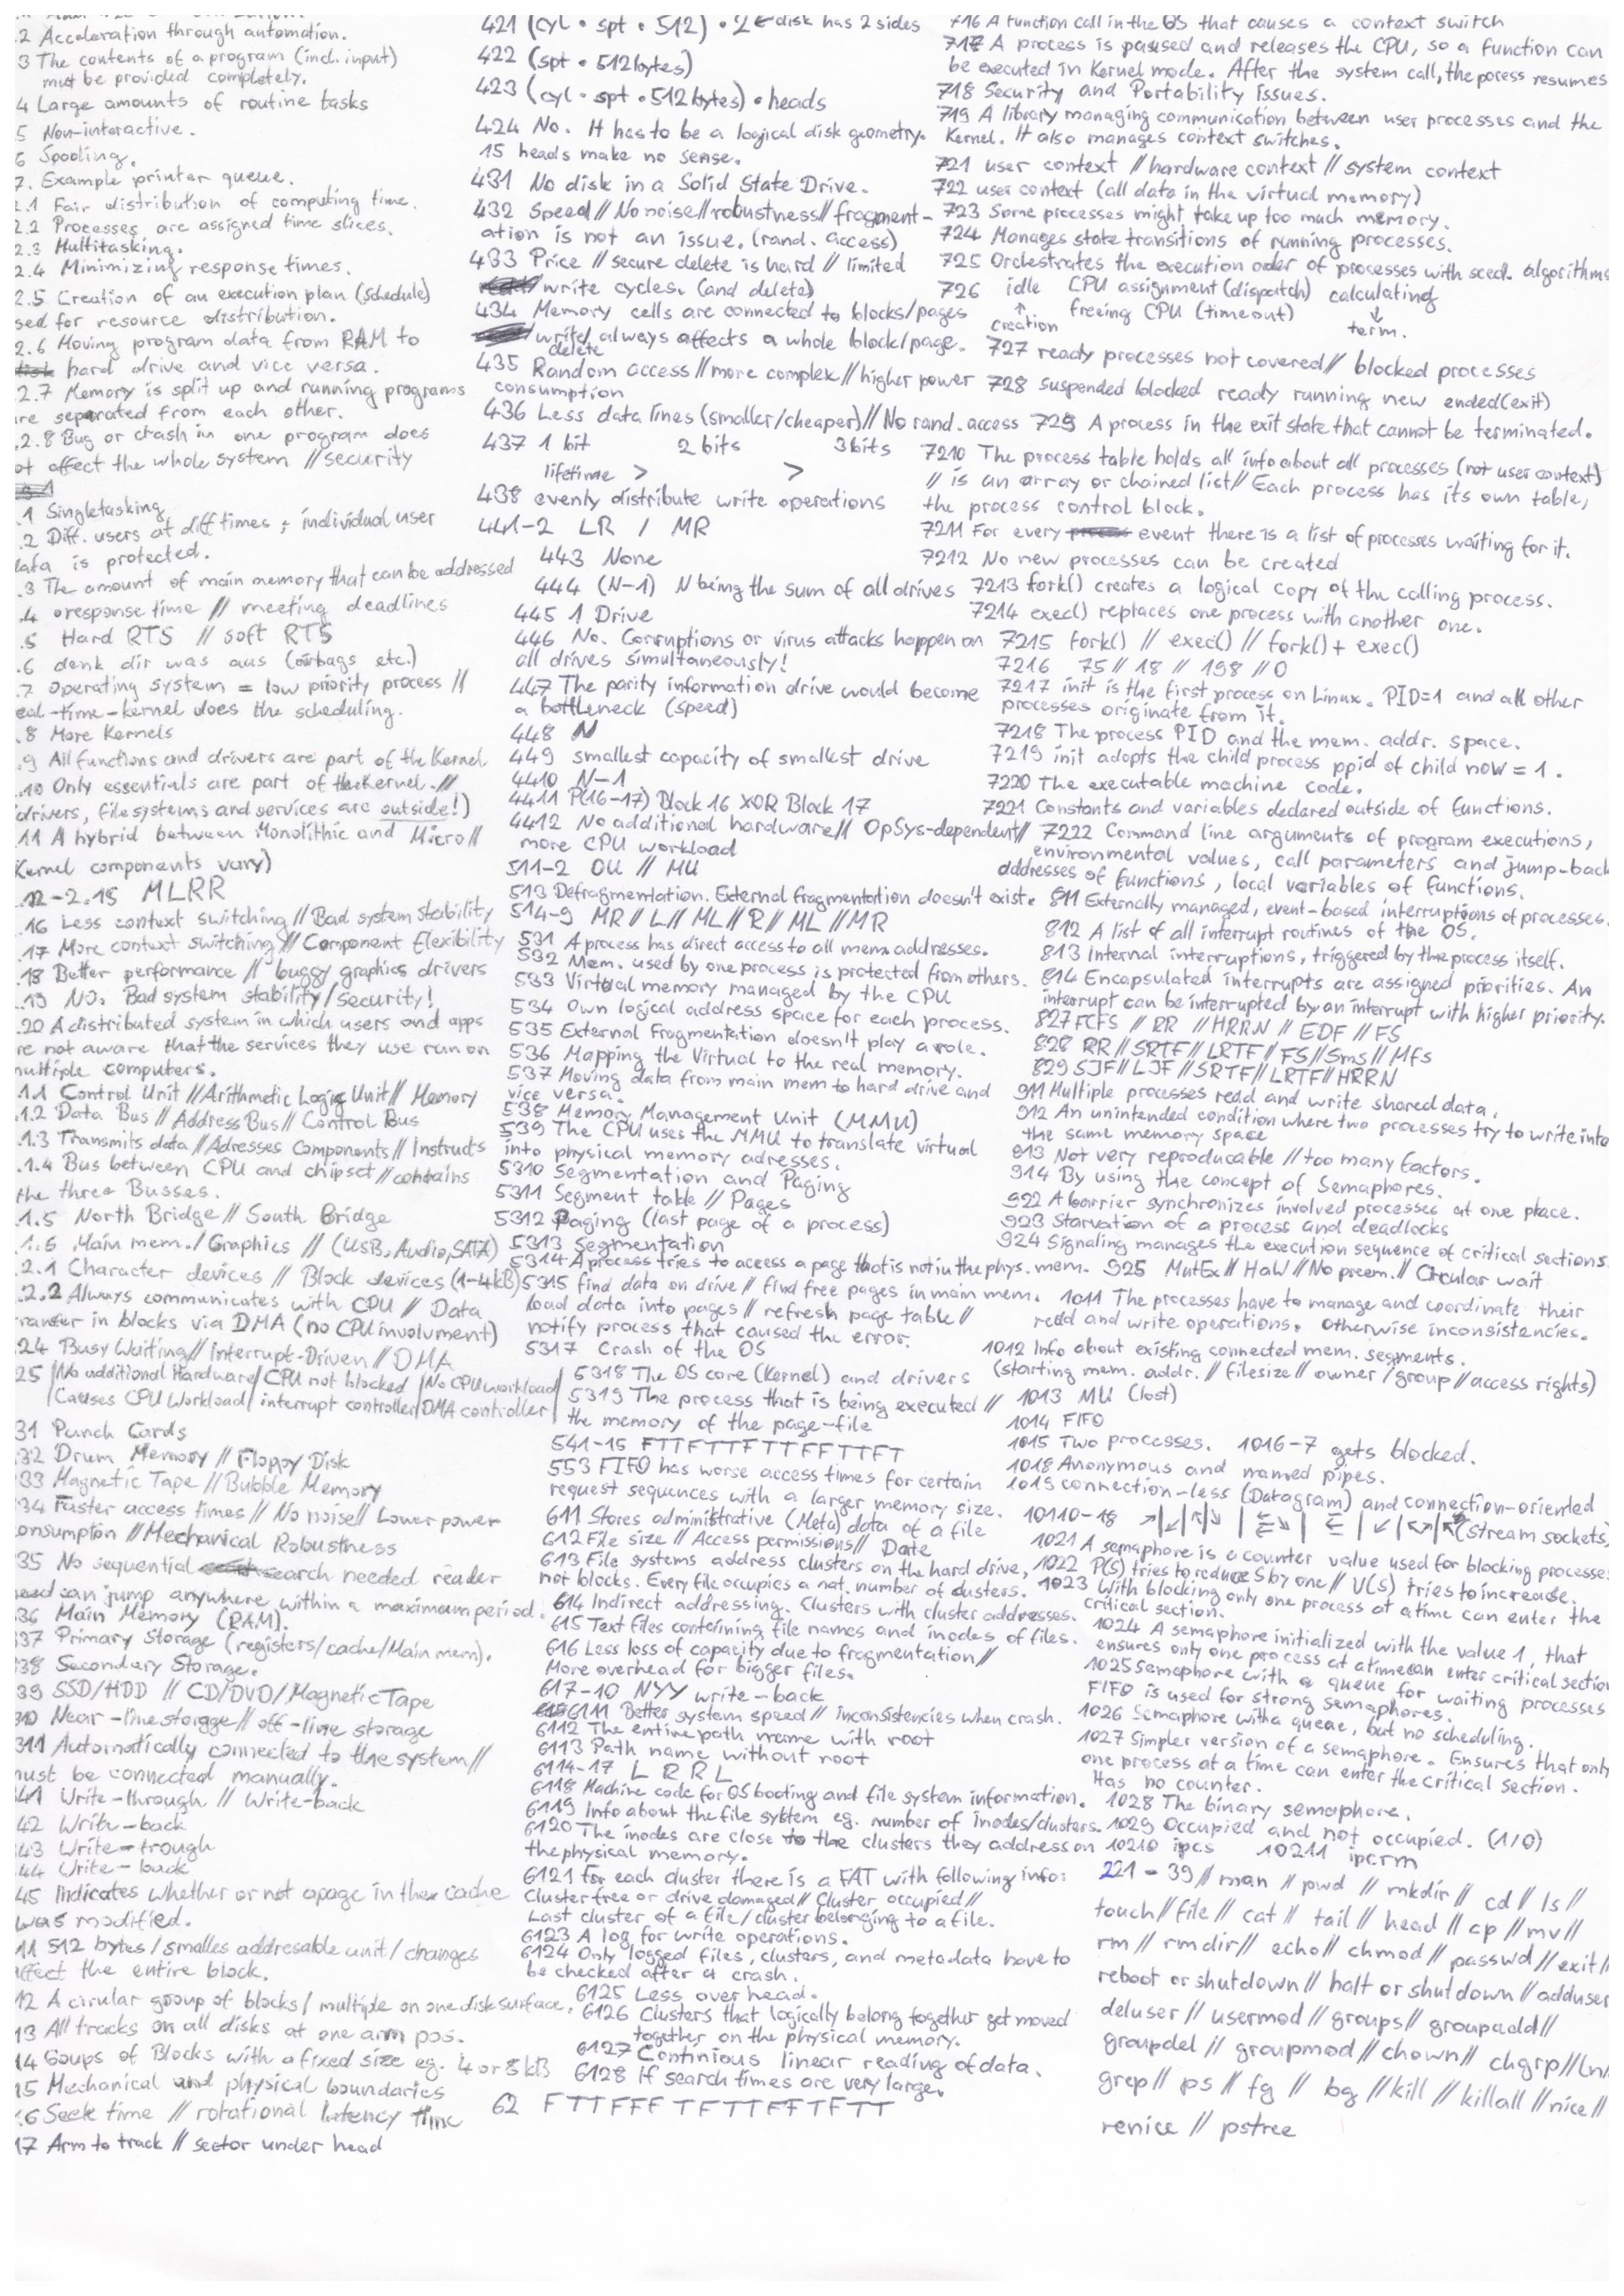 .2 Acceleration through automation.
3 The contents of a program (incl. input)
must be provided completely.
4 Large amounts of routine tasks
5 Non-interactive.
6 Spooling.
7. Example printer queue.
2.1 Fair distribution of computing time.
2.2 Processes are assigned time slices.
2.3 Multitasking.
2.4 Minimizing response times.
2.5 Creation of an execution plan (schedule)
sed for resource distribution.
2.6 Moving program data from RAM to
hard drive and vice versa.
2.7 Memory is split up and running programs
re seperated from each other.
.2.8 Bug or crash in one program does
ot affect the whole system // security
.1 Singletasking
.2 Diff. users at diff times ; individual user
data is protected.
.3 The amount of main memory that can be addressed
.4 response time // meeting deadlines
.5 Hard RTS // soft RTS
.6 denk dir was aus (airbags etc.)
.7 Operating system = low priority process //
eal-time-kernel does the scheduling.
.8 More Kernels
.9 All functions and drivers are part of the Kernel
.10 Only essentials are part of the Kernel. //
(drivers, filesystems and services are outside!)
.11 A hybrid between Monolithic and Micro //
Kernel components vary)
.12-2.15 MLRR
.16 Less context switching // Bad system stability
.17 More context switching // Component Flexibility
.18 Better performance // buggy graphics drivers
.19 NO. Bad system stability/security!
.20 A distributed system in which users and apps
re not aware that the services they use run on
multiple computers.
.1.1 Control Unit // Arithmetic Logic Unit // Memory
.1.2 Data Bus // Address Bus // Control Bus
.1.3 Transmits data // Adresses Components // Instructs
.1.4 Bus between CPU and chipset // contains
the three Busses.
.1.5 North Bridge // South Bridge
.1.6 Main mem./Graphics // (USB, Audio, SATA)
.2.1 Character devices // Block devices (1-4kB)
.2.2 Always communicates with CPU // Data
ransfer in blocks via DMA (no CPU involument)
.24 Busy Waiting // Interrupt-Driven // DMA
25 | No additional Hardware | CPU not blocked | No CPU workload
| Causes CPU Workload | interrupt controller | DMA controller |
31 Punch Cards
.32 Drum Memory // Floppy Disk
.33 Magnetic Tape // Bubble Memory
34 Faster access times // No noise // Lower power
onsumption // Mechanical Robustness
35 No sequential search needed reader
head can jump anywhere within a maximum period.
36 Main Memory (RAM).
37 Primary Storage (registers/cache/Main mem).
38 Secondary Storage.
39 SSD/HDD // CD/DVD/Magnetic Tape
310 Near-line storage // off-line storage
311 Automatically connected to the system //
must be connected manually.
41 Write-through // Write-back
42 Write-back
43 Write-trough
44 Write-back
45 Indicates whether or not a page in the cache
was modified.
11 512 bytes / smalles addresable unit / changes
affect the entire block.
12 A circular group of blocks / multiple on one disk surface.
13 All tracks on all disks at one arm pos.
14 Goups of Blocks with a fixed size eg. 4 or 8 kB
15 Mechanical and physical boundaries
.16 Seek time // rotational latency time
17 Arm to track // sector under head
421 (cyl • spt • 512) • 2 ← disk has 2 sides
422 (spt • 512bytes)
423 (cyl • spt • 512 bytes) • heads
424 No. It has to be a logical disk geometry.
15 heads make no sense.
431 No disk in a Solid State Drive.
432 Speed // No noise // robustness // fragment-
ation is not an issue. (rand. access)
433 Price // secure delete is hard // limited
write cycles. (and delete)
434 Memory cells are connected to blocks/pages
write/ always affects a whole block/page.
delete
435 Random access // more complex // higher power
consumption
436 Less data lines (smaller/cheaper) // No rand. access
437 1 bit 2 bits 3 bits
lifetime > >
438 evenly distribute write operations
441-2 LR / MR
443 None
444 (N-1) N being the sum of all drives
445 1 Drive
446 No. Corruptions or virus attacks happen on
all drives simultaneously!
447 The parity information drive would become
a bottleneck (speed)
448 N
449 smallest capacity of smallest drive
4410 N-1
4411 P(16-17) Block 16 XOR Block 17
4412 No additional hardware // OpSys-dependent //
more CPU workload
511-2 OU // MU
513 Defragmentation. External fragmentation doesn't exist.
514-9 MR // L // ML // R // ML // MR
531 A process has direct access to all mem. addresses.
532 Mem. used by one process is protected from others.
533 Virtual memory managed by the CPU
534 Own logical address space for each process.
535 External Fragmentation doesn't play a role.
536 Mapping the Virtual to the real memory.
537 Moving data from main mem to hard drive and
vice versa.
538 Memory Management Unit (MMU)
539 The CPU uses the MMU to translate virtual
into physical memory adresses.
5310 Segmentation and Paging
5311 Segment table // Pages
5312 Paging (last page of a process)
5313 Segmentation
5314 A process tries to access a page that is not in the phys. mem.
5315 find data on drive // find free pages in main mem.
load data into pages // refresh page table //
notify process that caused the error.
5317 Crash of the OS
5318 The OS core (Kernel) and drivers
5319 The process that is being executed //
the memory of the page-file
541-15 FTTFTTFTTFFTTFT
553 FIFO has worse access times for certain
request sequences with a larger memory size.
611 Stores administrative (Meta) data of a file
612 File size // Access permissions // Date
613 File systems address clusters on the hard drive,
not blocks. Every file occupies a nat. number of clusters.
614 Indirect addressing. Clusters with cluster addresses.
615 Text files containing file names and inodes of files.
616 Less loss of capacity due to fragmentation //
More overhead for bigger files.
617-10 NYY write-back
6111 Better system speed // inconsistencies when crash.
6112 The entire path name with root
6113 Path name without root
6114-17 L R R L
6118 Machine code for OS booting and file system information.
6119 Info about the file system eg. number of inodes/clusters.
6120 The inodes are close to the clusters they address on
the physical memory.
6121 For each cluster there is a FAT with following info:
Cluster free or drive damaged // Cluster occupied //
Last cluster of a file / cluster belonging to a file.
6123 A log for write operations.
6124 Only logged files, clusters, and metadata have to
be checked after a crash.
6125 Less overhead.
6126 Clusters that logically belong together get moved
together on the physical memory.
6127 Continious linear reading of data.
6128 If search times are very large.
62 F T T F F F T F T T F F T F T T
716 A function call in the OS that causes a context switch
717 A process is paused and releases the CPU, so a function can
be executed in Kernel mode. After the system call, the pocess resumes
718 Security and Portability issues.
719 A library managing communication between user processes and the
Kernel. It also manages context switches.
721 user context // hardware context // system context
722 user context (all data in the virtual memory)
723 Some processes might take up too much memory.
724 Manages state transitions of running processes.
725 Orchestrates the execution order of processes with sced. algorithms
726 idle CPU assignment (dispatch) calculating
↑ freeing CPU (timeout) ↓
creation term.
727 ready processes not covered // blocked processes
728 suspended blocked ready running new ended(exit)
729 A process in the exit state that cannot be terminated.
7210 The process table holds all info about all processes (not user context)
// is an array or chained list // Each process has its own table,
the process control block.
7211 For every event there is a list of processes waiting for it.
7212 No new processes can be created
7213 fork() creates a logical copy of the calling process.
7214 exec() replaces one process with another one.
7215 fork() // exec() // fork() + exec()
7216 75 // 18 // 198 // 0
7217 init is the first process on Linux. PID=1 and all other
processes originate from it.
7218 The process PID and the mem. addr. space.
7219 init adopts the child process ppid of child now = 1.
7220 The executable machine code.
7221 Constants and variables declared outside of functions.
7222 Command line arguments of program executions,
environmental values, call parameters and jump-back
addresses of functions, local variables of functions.
811 Externally managed, event-based interruptions of processes.
812 A list of all interrupt routines of the OS.
813 Internal interruptions, triggered by the process itself.
814 Encapsulated interrupts are assigned priorities. An
interrupt can be interrupted by an interrupt with higher priority.
827 FCFS // RR // HRRN // EDF // FS
828 RR // SRTF // LRTF // FS // Sms // Mfs
829 SJF // LJF // SRTF // LRTF // HRRN
911 Multiple processes read and write shared data.
912 An unintended condition where two processes try to write into
the same memory space
913 Not very reproducable // too many factors.
914 By using the concept of Semaphores.
922 A barrier synchronizes involved processes at one place.
923 Starvation of a process and deadlocks
924 Signaling manages the execution sequence of critical sections.
925 MutEx // HaW // No preem. // Circular wait
1011 The processes have to manage and coordinate their
read and write operations. Otherwise inconsistencies.
1012 Info about existing connected mem. segments.
(starting mem. addr. // filesize // owner/group // access rights)
1013 MU (lost)
1014 FIFO
1015 Two processes. 1016-7 gets blocked.
1018 Anonymous and named pipes.
1019 connection-less (Datagram) and connection-oriented
(stream sockets)
10110-18
1021 A semaphore is a counter value used for blocking processes
1022 P(S) tries to reduce S by one // V(S) tries to increase.
1023 With blocking only one process at a time can enter the
critical section.
1024 A semaphore initialized with the value 1, that
ensures only one process at a time can enter critical section
1025 Semaphore with a queue for waiting processes
FIFO is used for strong semaphores.
1026 Semaphore with a queue, but no scheduling.
1027 Simpler version of a semaphore. Ensures that only
one process at a time can enter the critical section.
Has no counter.
1028 The binary semaphore.
1029 Occupied and not occupied. (1/0)
10210 ipcs 10211 ipcrm
221 - 39 // man // pwd // mkdir // cd // ls //
touch // file // cat // tail // head // cp // mv //
rm // rmdir // echo // chmod // passwd // exit //
reboot or shutdown // halt or shutdown // adduser
deluser // usermod // groups // groupadd //
groupdel // groupmod // chown // chgrp // ln //
grep // ps // fg // bg // kill // killall // nice //
renice // pstree